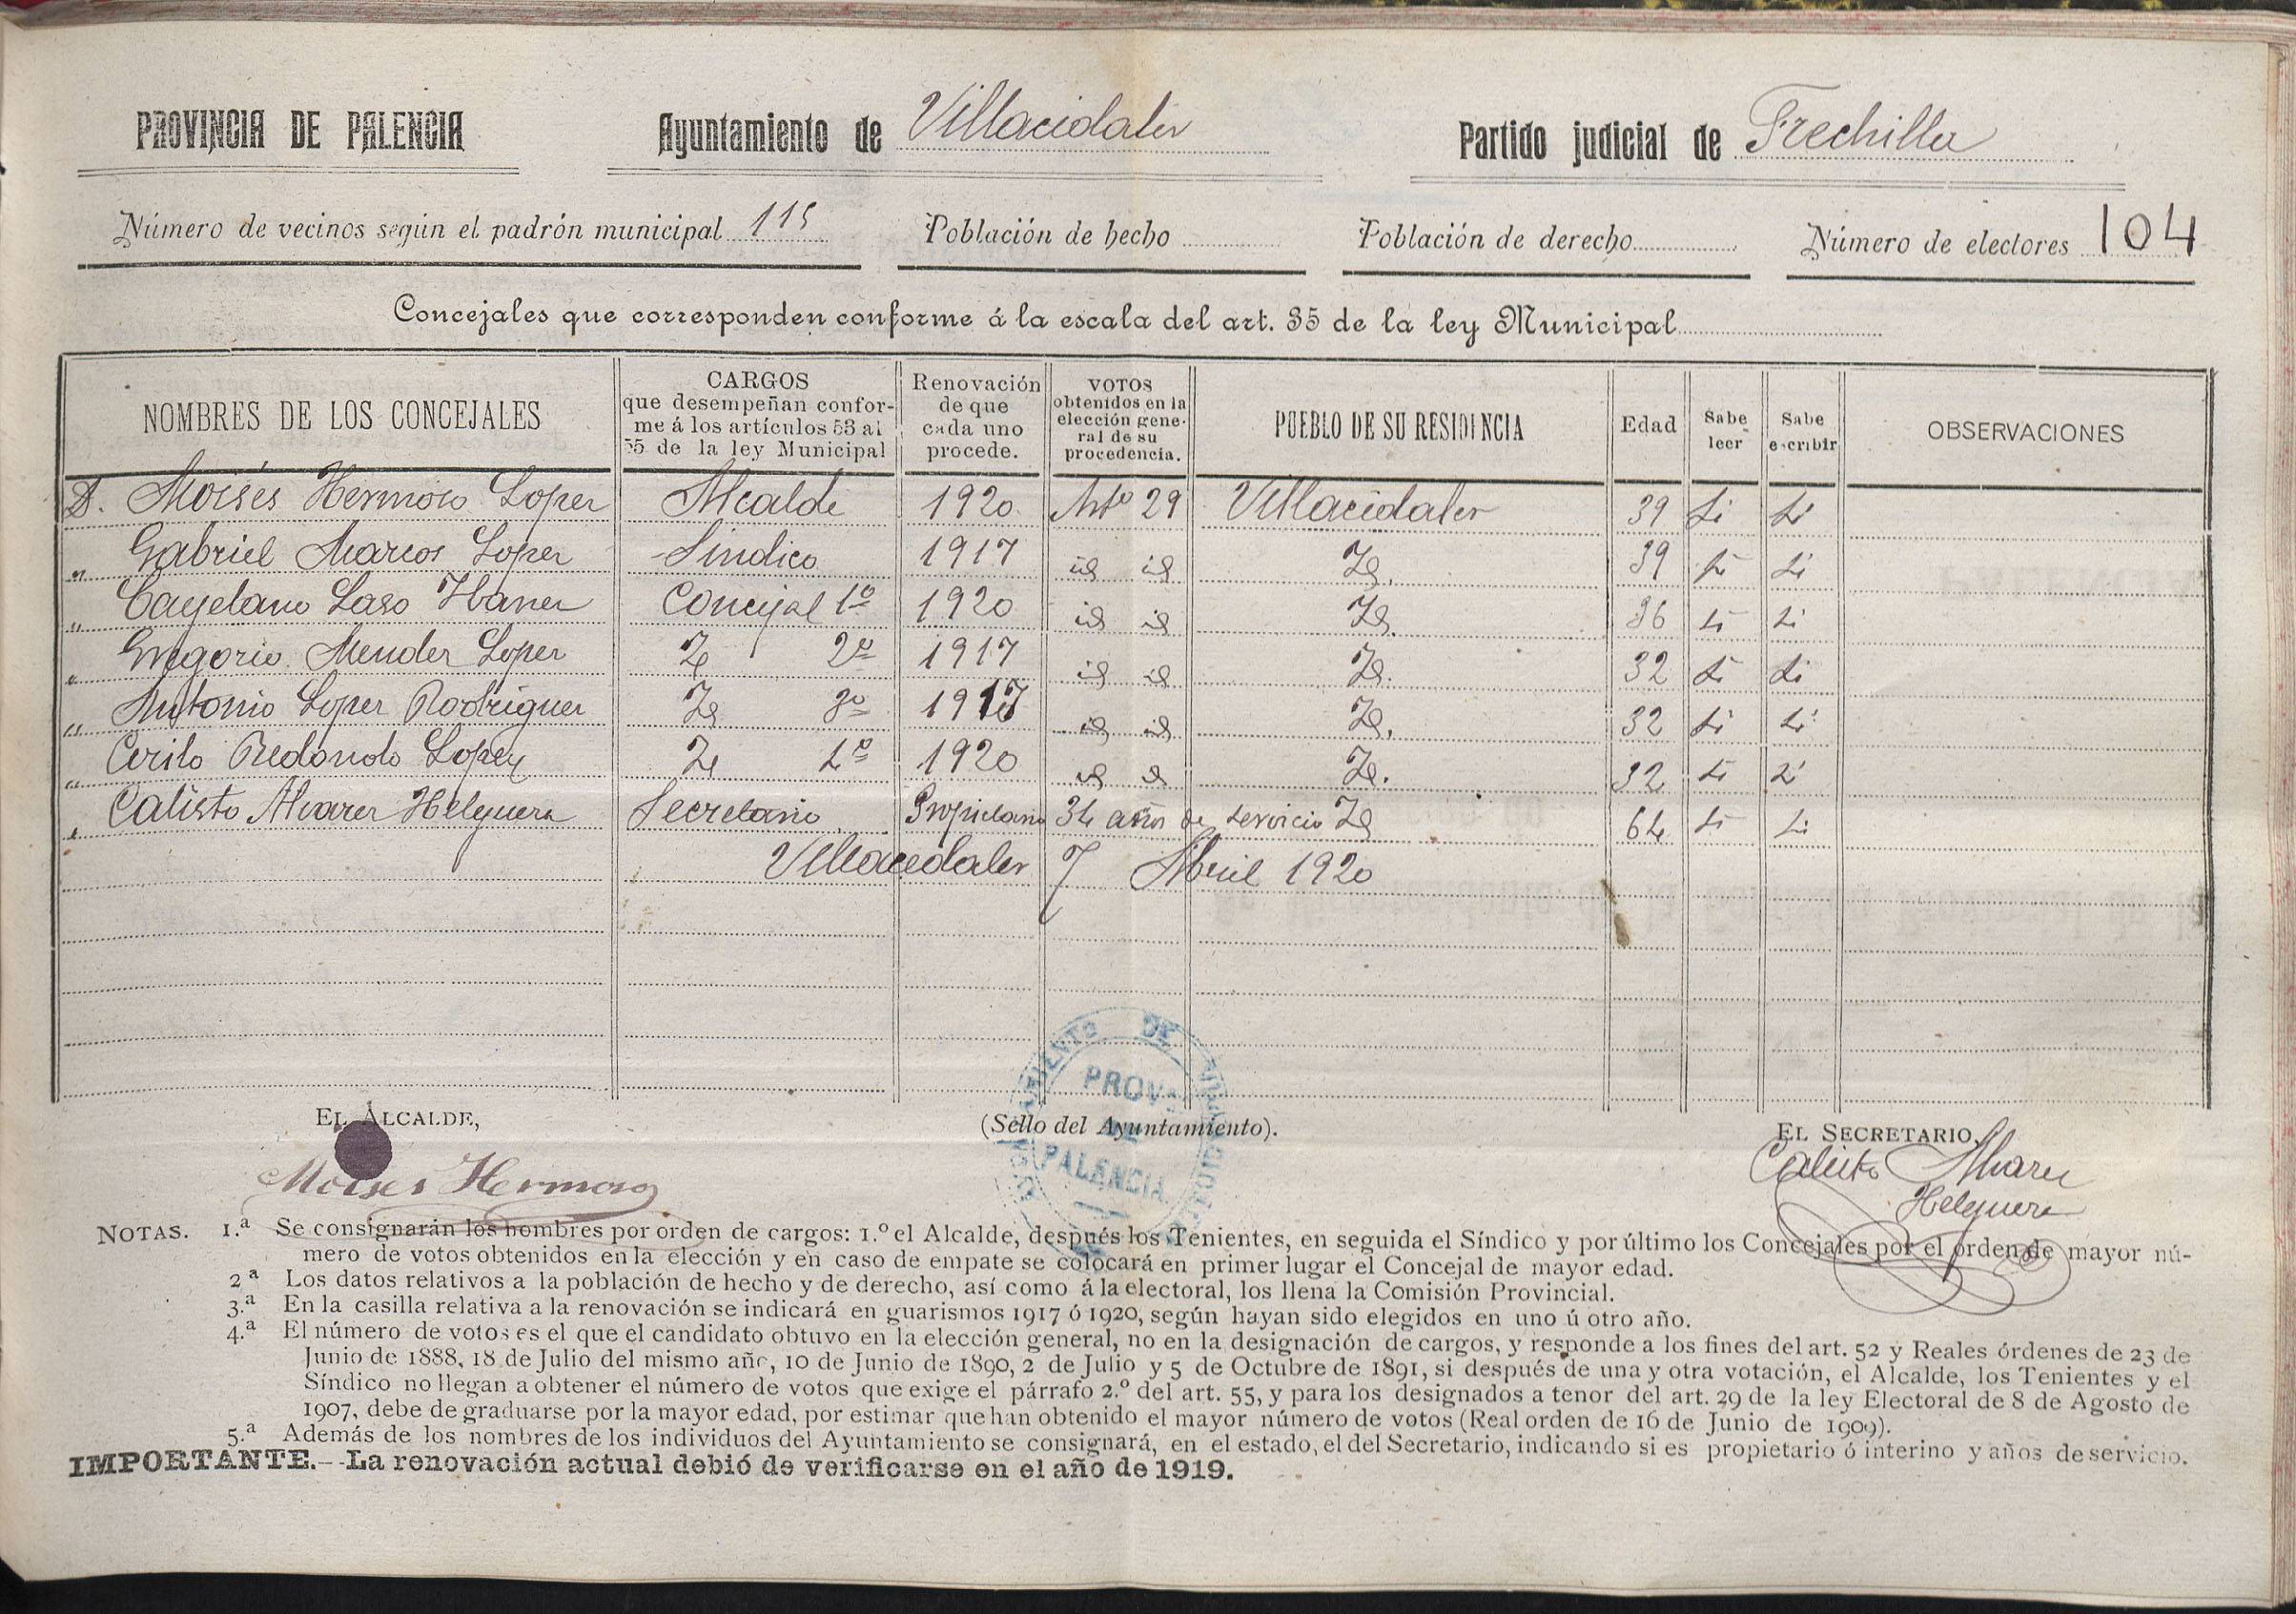 PROVINCIA DE PALENCIA Ayuntamiento de Villacidaler Partido judicial de Frechilla
Número de vecinos según el padrón municipal 115 Población de hecho Población de derecho Número de electores 104
Concejales que corresponden conforme á la escala del art. 35 de la ley Municipal
NOMBRES DE LOS CONCEJALES CARGOS que desempeñan conforme á los artículos 53 al 55 de la ley Municipal Renovación de que cada uno procede. VOTOS obtenidos en la elección general de su procedencia. PUEBLO DE SU RESIDENCIA Edad Sabe leer Sabe escribir OBSERVACIONES
D. Moisés Hermoso Lopez Alcalde 1920 Artº 29 Villacidaler 39 Si Si
" Gabriel Marcos Lopez Sindico 1917 id id Id. 39 Si Si
" Cayetano Laso Ibañez Concejal 1º 1920 id id Id. 36 Si Si
" Gregorio Mendez Lopez Id 2º 1917 id id Id. 32 Si Si
" Antonio Lopez Rodriguez Id 3º 1917 id id Id. 32 Si Si
" Cirilo Redondo Lopez Id 4º 1920 id id Id. 32 Si Si
" Calisto Alvarez Helguera Secretario Propietario 34 años de servicio Id 64 Si Si
Villacidaler 7 Abril 1920
EL ALCALDE, (Sello del Ayuntamiento). EL SECRETARIO,
Moises Hermoso Calisto Alvarez
Helguera
AYUNTAMIENTO DE VILLACIDALER
PROVA
DE
PALENCIA
NOTAS. 1.ª Se consignarán los nombres por orden de cargos: 1.º el Alcalde, después los Tenientes, en seguida el Síndico y por último los Concejales por el orden de mayor nú-
mero de votos obtenidos en la elección y en caso de empate se colocará en primer lugar el Concejal de mayor edad.
2ª Los datos relativos a la población de hecho y de derecho, así como á la electoral, los llena la Comisión Provincial.
3.ª En la casilla relativa a la renovación se indicará en guarismos 1917 ó 1920, según hayan sido elegidos en uno ú otro año.
4.ª El número de votos es el que el candidato obtuvo en la elección general, no en la designación de cargos, y responde a los fines del art. 52 y Reales órdenes de 23 de
Junio de 1888, 18 de Julio del mismo año, 10 de Junio de 1890, 2 de Julio y 5 de Octubre de 1891, si después de una y otra votación, el Alcalde, los Tenientes y el
Síndico no llegan a obtener el número de votos que exige el párrafo 2.º del art. 55, y para los designados a tenor del art. 29 de la ley Electoral de 8 de Agosto de
1907, debe de graduarse por la mayor edad, por estimar que han obtenido el mayor número de votos (Real orden de 16 de Junio de 1909).
5.ª Además de los nombres de los individuos del Ayuntamiento se consignará, en el estado, el del Secretario, indicando si es propietario ó interino y años de servicio.
IMPORTANTE.--La renovación actual debió de verificarse en el año de 1919.